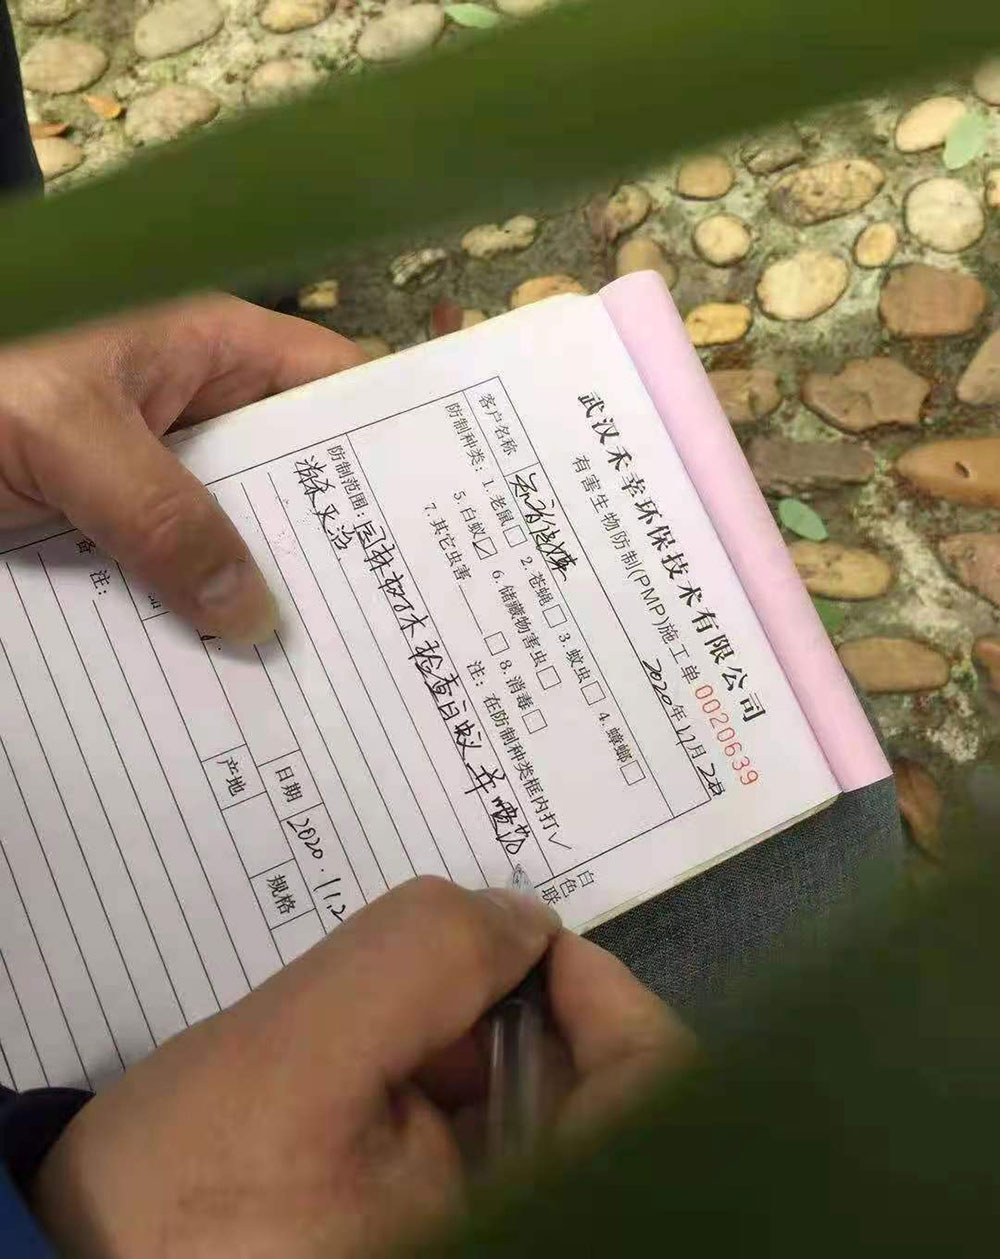 武汉禾幸环保技术有限公司
有害生物防制(PMP)施工单 0020639
2020年11月2日
客户名称
防制种类：1.老鼠□ 2.苍蝇□ 3.蚊虫□ 4.蟑螂□
5.白蚁☑ 6.储藏物害虫□
7.其它虫害 □ 8.消毒□
注：在防制种类框内打✓
白色联
防制范围：园林树木检查白蚁并喷药
灭治
日期 2020.11.2
产地
规格
备注：